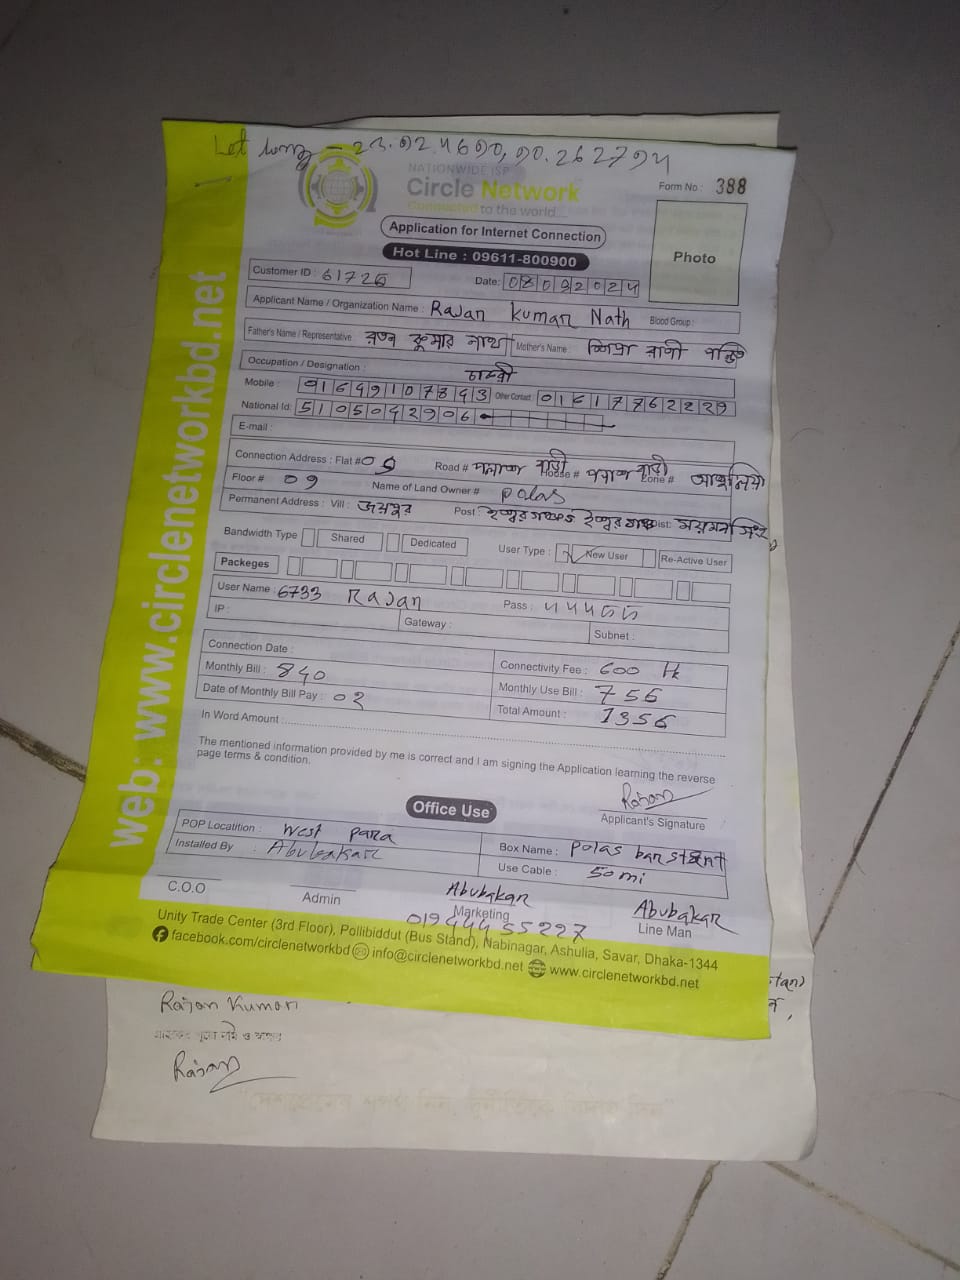 Let long - 23.924690, 90.262794
NATIONWIDE ISP
Circle Network
Connected to the world
Form No : 388
Application for Internet Connection
Hot Line : 09611-800900
Photo
Customer ID :
Date: 08092024
Applicant Name / Organization Name : Rajan Kumar Nath Blood Group :
Father's Name / Representative : রতন কুমার নাথ Mother's Name : শিপ্রা রাণী পন্ডিত
Occupation / Designation : চাকরী
Mobile : Other Contact :
National Id: 5105042906
E-mail :
Connection Address : Flat # Road # পলাশ বাড়ী House # পলাশ বাড়ী Zone # আশুলিয়া
Floor # 09 Name of Land Owner # Polas
Permanent Address : Vill : জয়পুর Post : ঈশ্বরগঞ্জ ঈশ্বরগঞ্জ Dist: ময়মনসিংহ
Bandwidth Type Shared Dedicated User Type : New User Re-Active User
Packeges
User Name : 6733 Rajan Pass : 445566
IP : Gateway : Subnet :
Connection Date : Connectivity Fee : 600 tk
Monthly Bill : 840 Monthly Use Bill : 756
Date of Monthly Bill Pay : 02 Total Amount : 1356
In Word Amount :
The mentioned information provided by me is correct and I am signing the Application learning the reverse
page terms & condition.
Rajan
Applicant's Signature
Office Use
POP Locatition : West Para Box Name : Polas bar stent
Installed By : Abubakar Use Cable : 50 mi
C.O.O Admin Abubakar Marketing Abubakar Line Man
Unity Trade Center (3rd Floor), Pollibiddut (Bus Stand), Nabinagar, Ashulia, Savar, Dhaka-1344
facebook.com/circlenetworkbd info@circlenetworkbd.net www.circlenetworkbd.net
web: www.circlenetworkbd.net
Rajan Kumar
Rajan